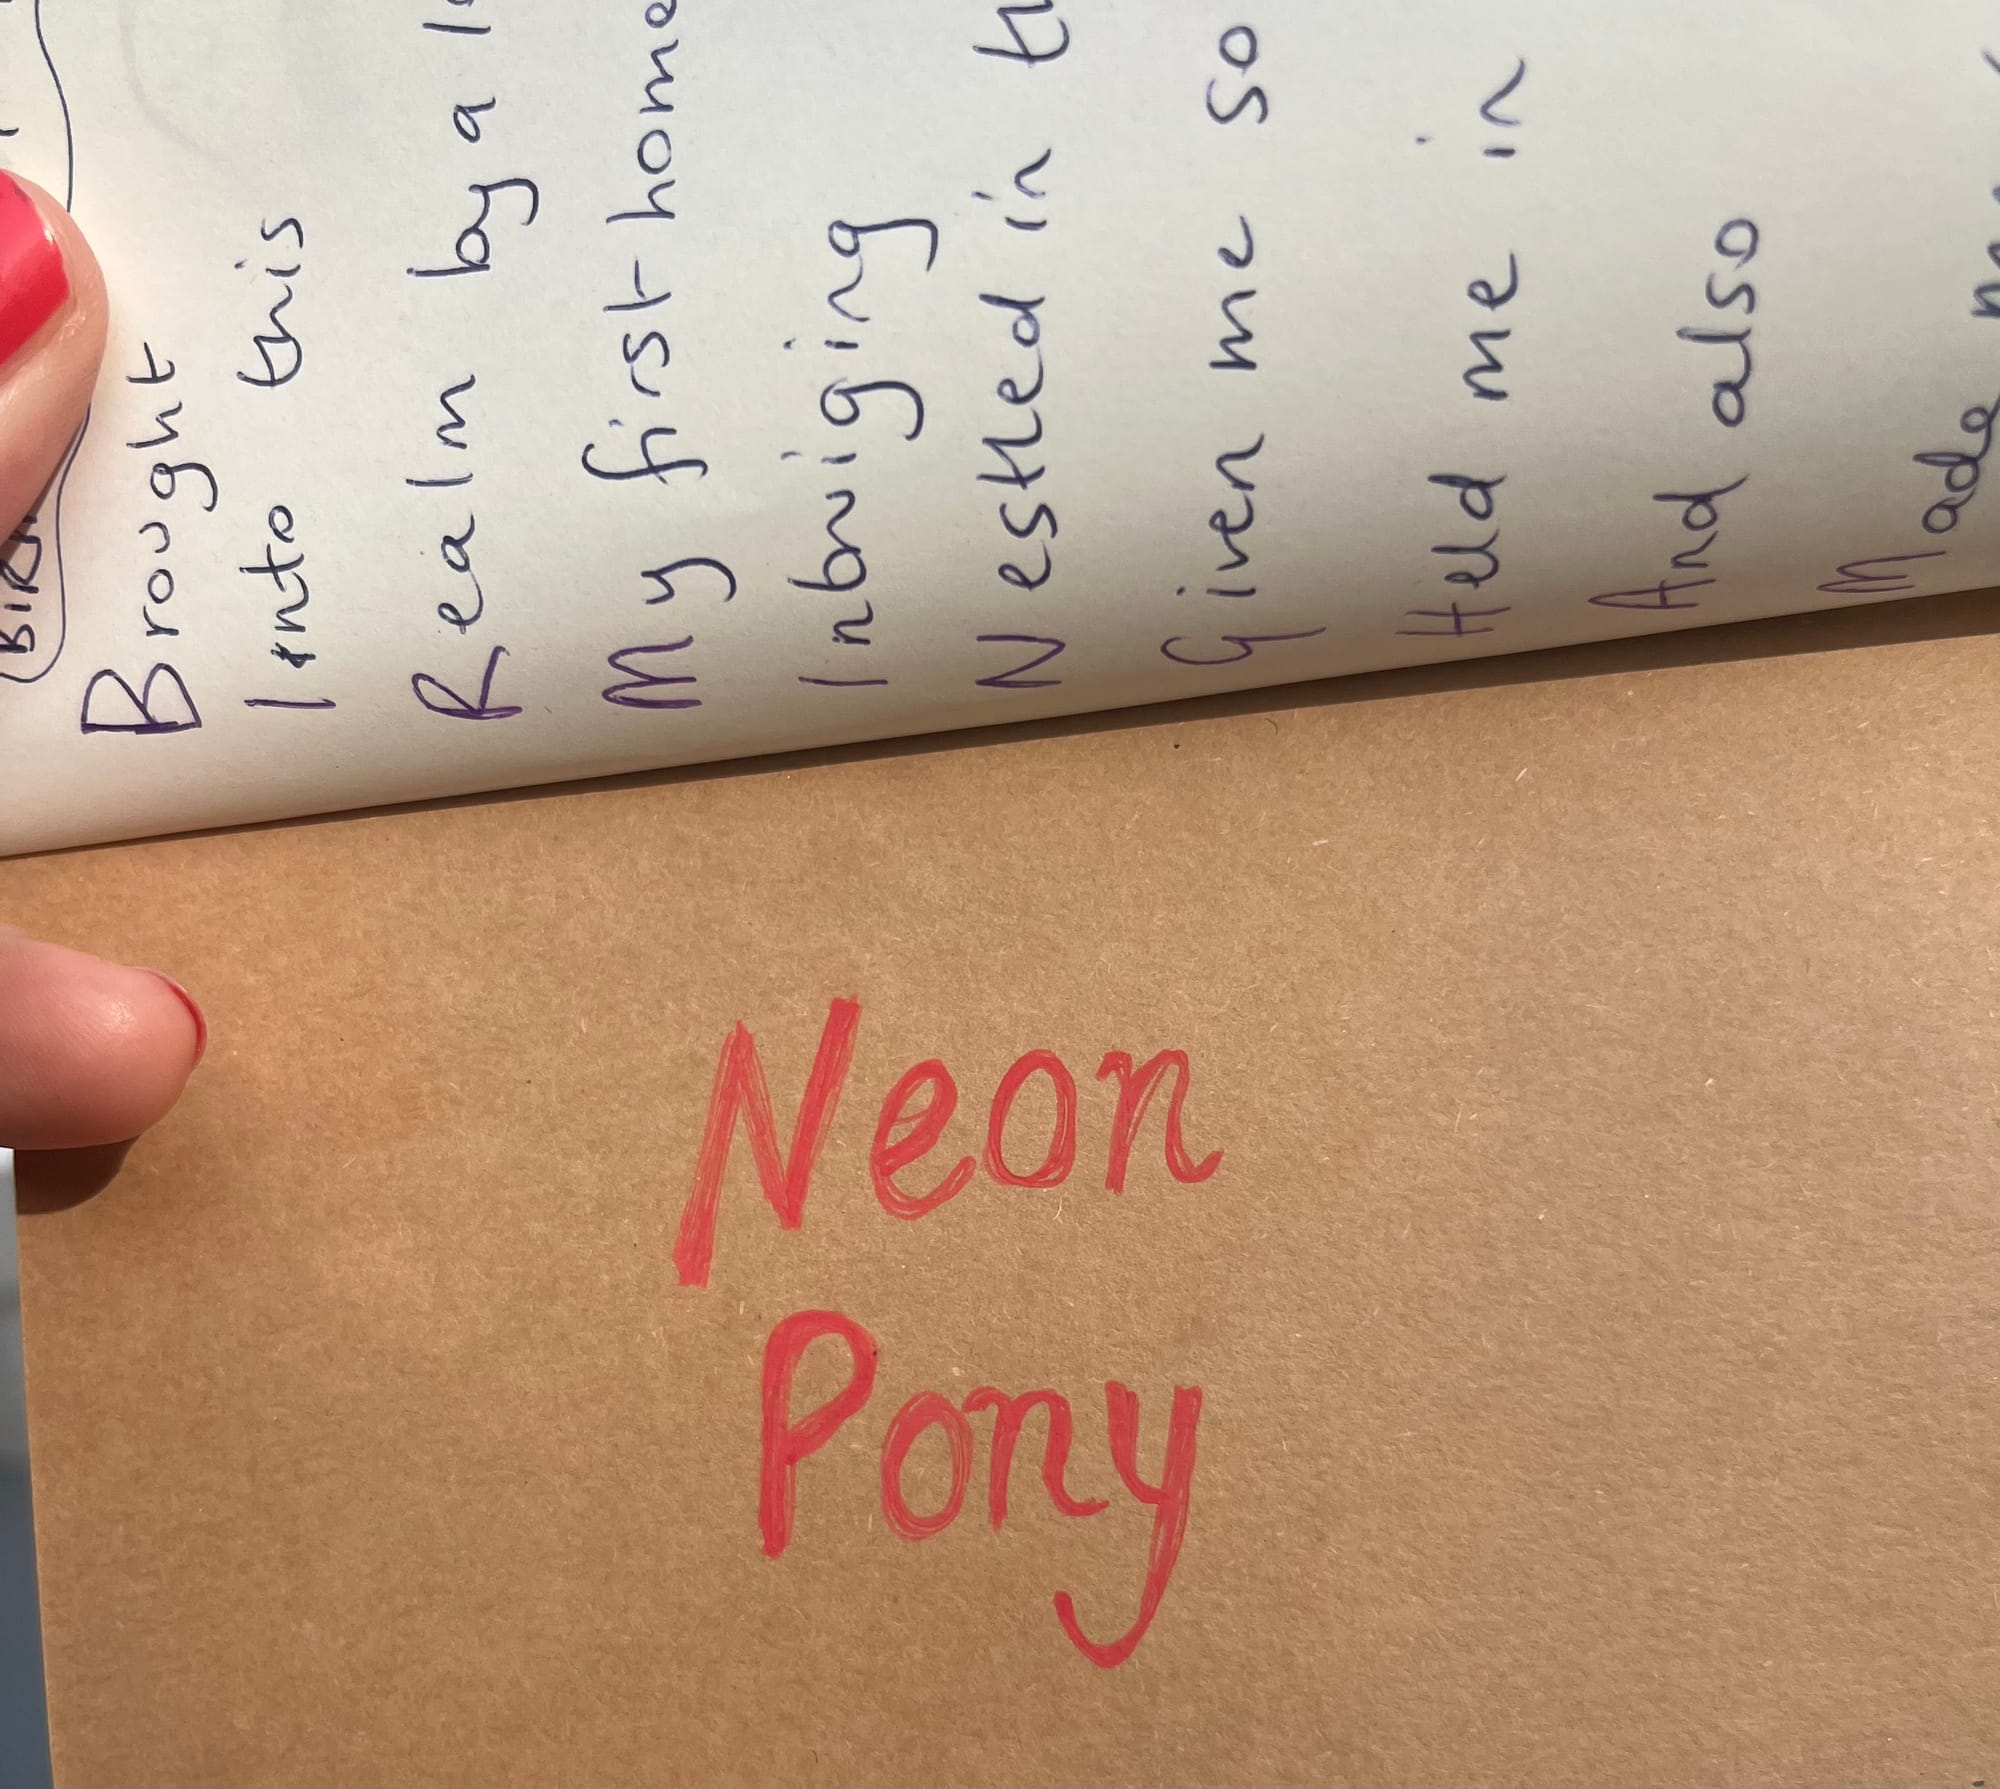 Brought
Into this
Realm by a
My first home
Inbviging
Nestled in
Given me so
Held me in
And also
Made
Neon
Pony